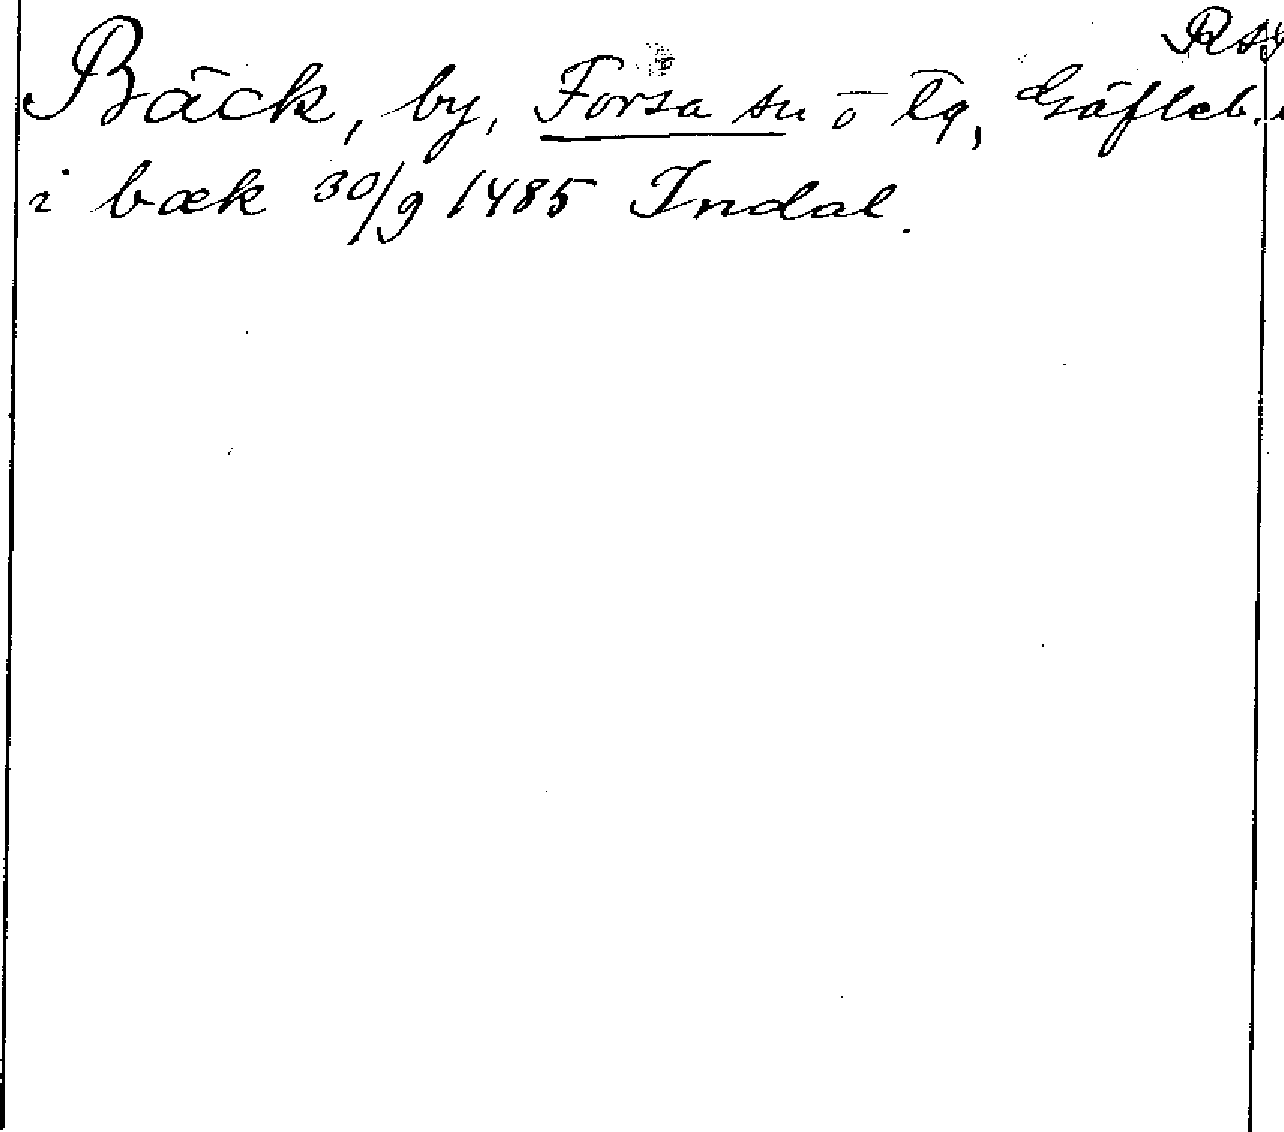 Bäck, by, Forsa sn o tg, Gäfleb.
i bæk 30/9 1485 Indal.